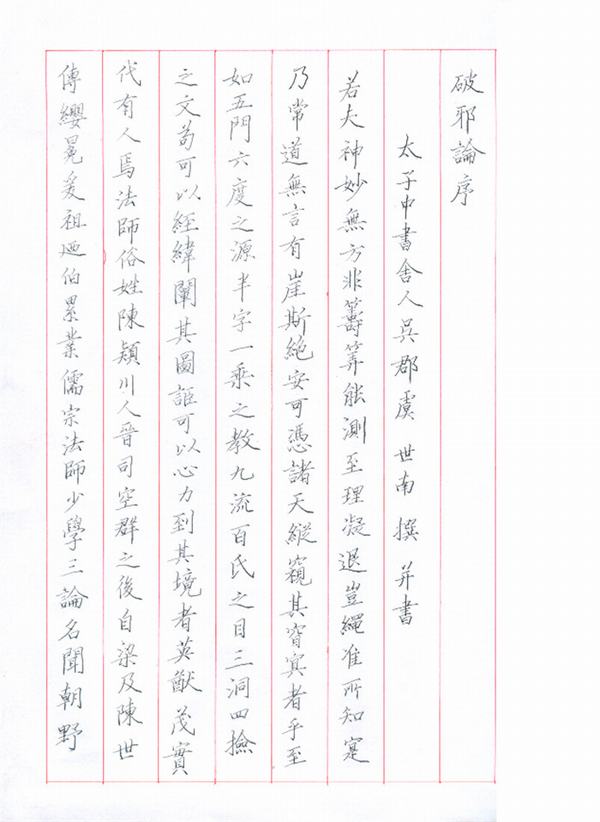 破邪論序
太子中書舍人吳郡虞世南撰并書
若夫神妙無方非籌筭能測至理凝退豈繩准所知寔
乃常道無言有崖斯絕安可憑諸天縱窺其窅冥者乎至
如五門六度之源半字一乘之教九流百氏之目三洞四撿
之文苟可以經緯闡其圖詎可以心力到其境者英猷茂實
代有人焉法師俗姓陳潁川人晉司空群之後自梁及陳世
傳纓冕爰祖迺伯累業儒宗法師少學三論名聞朝野